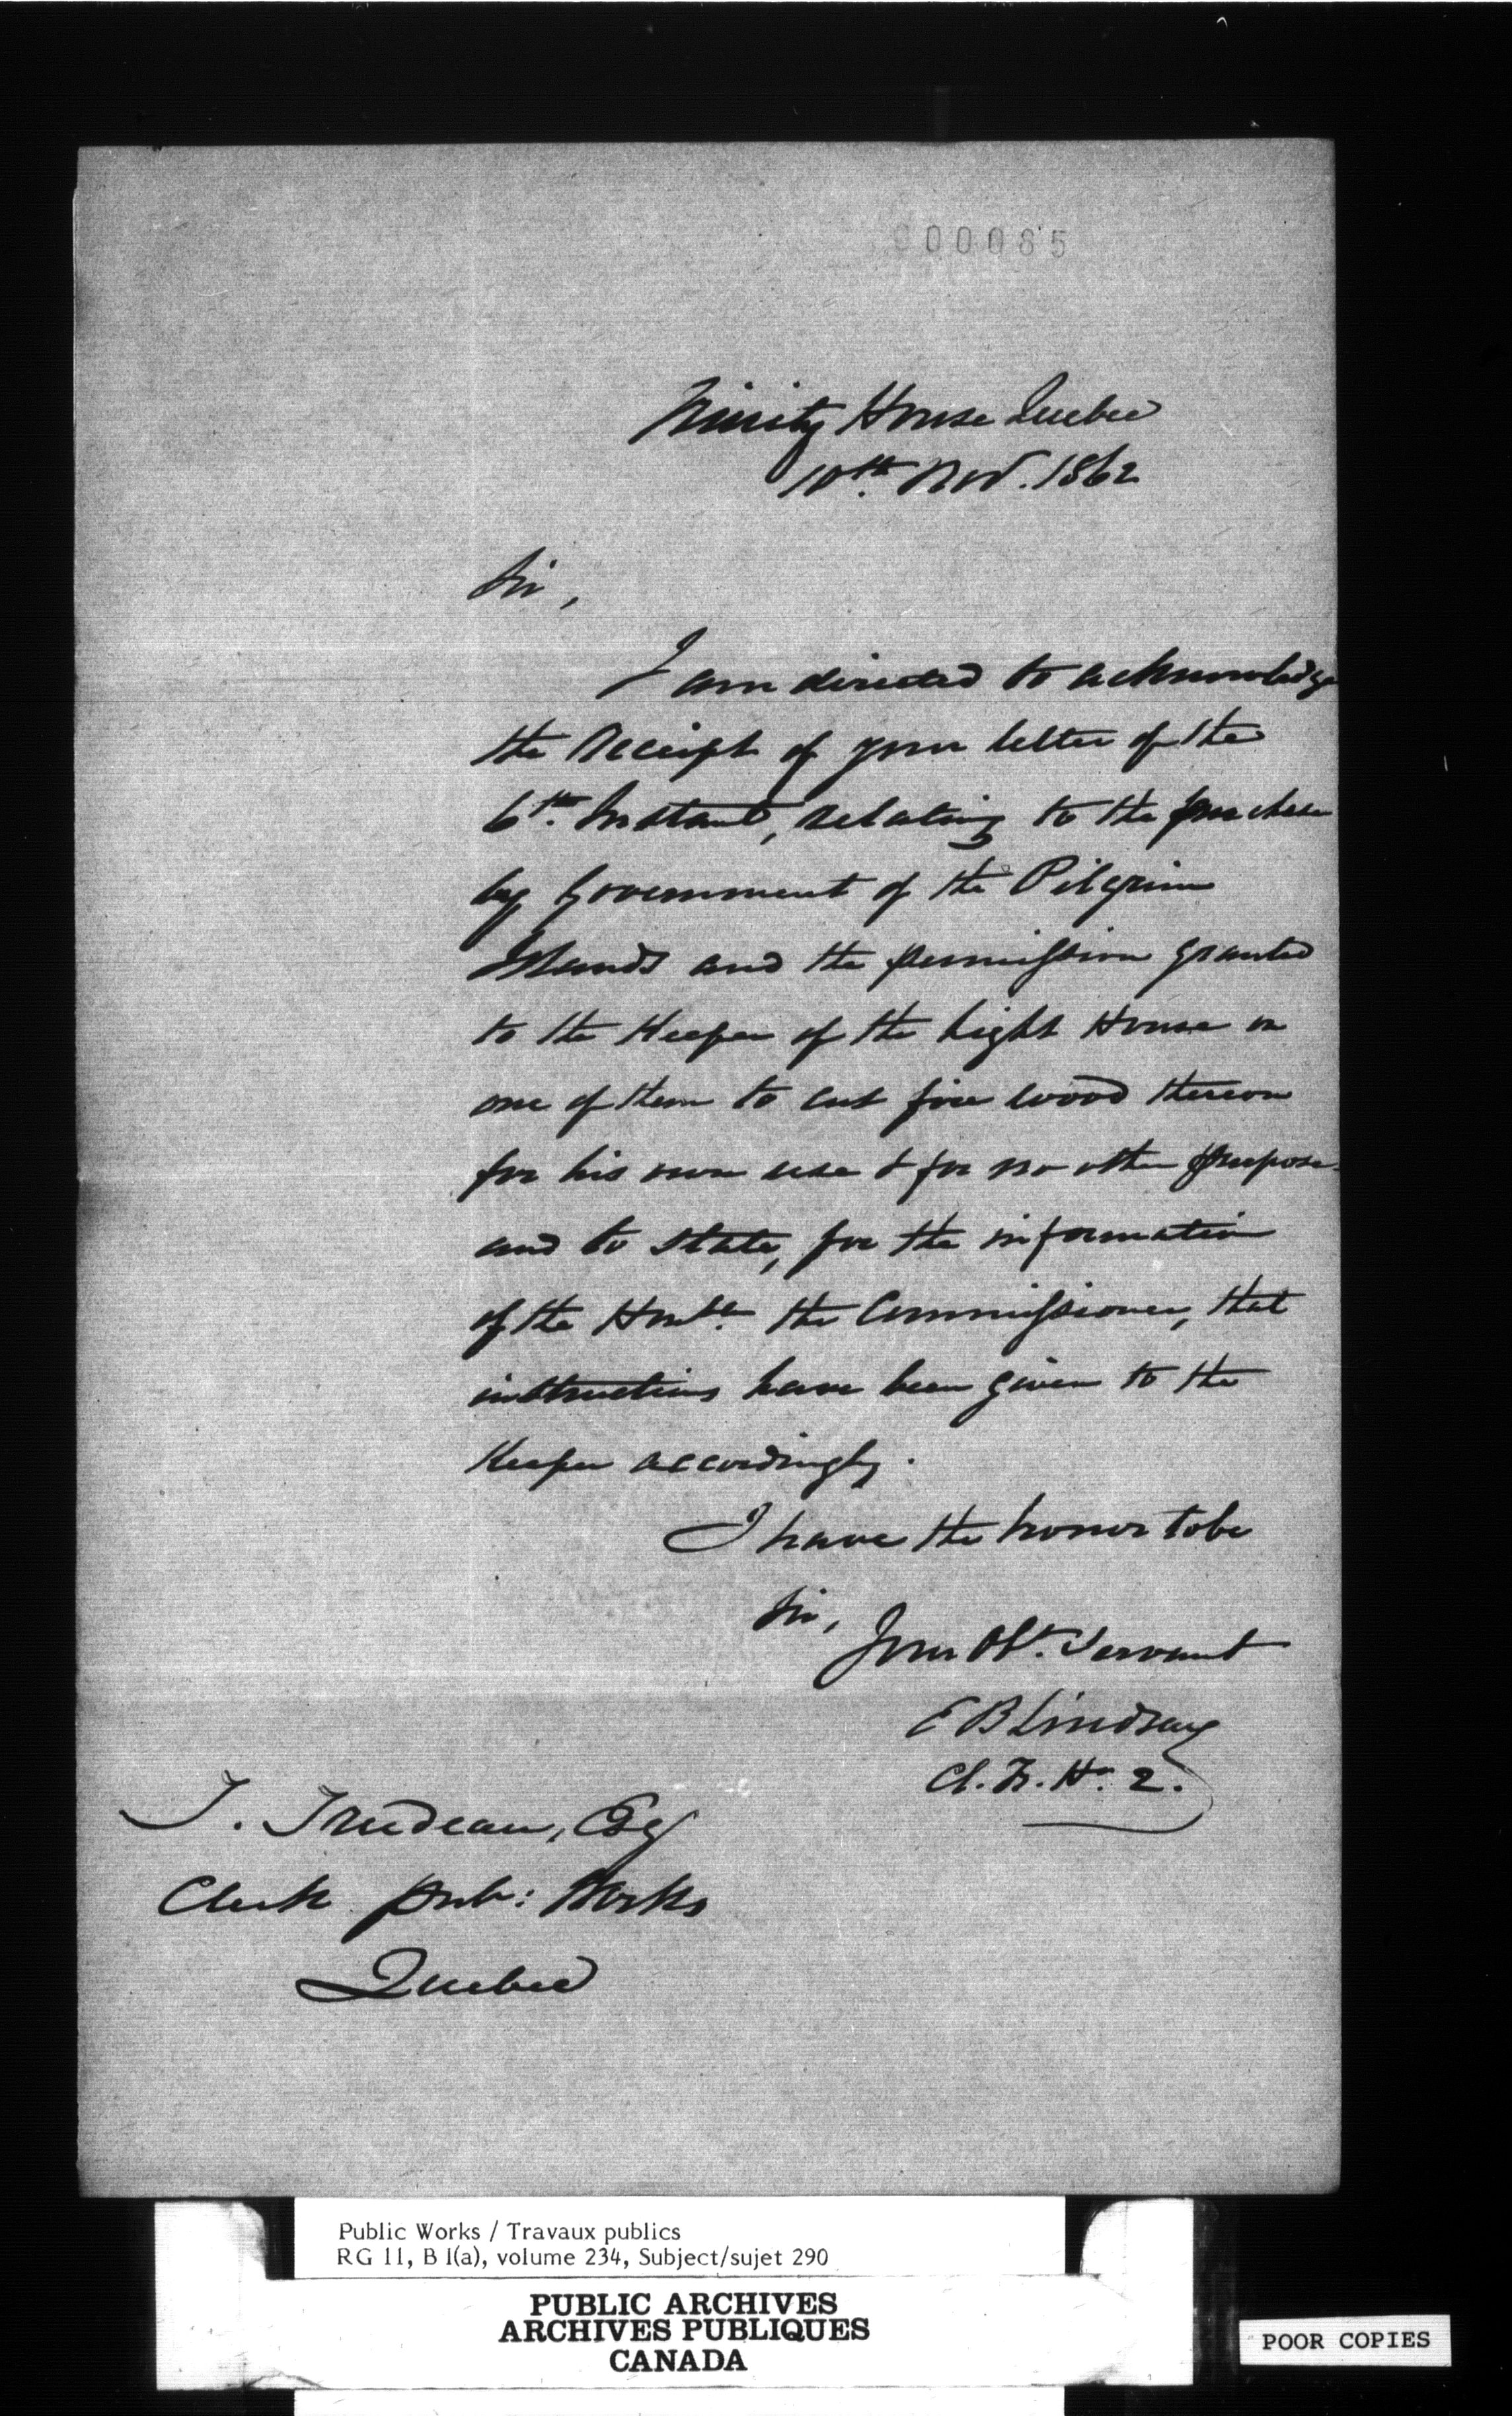 000085
Trinity House Quebec
10th. Nov. 1862
Sir,
I am directed to acknowledge
the Receipt of your letter of the
6th. Instant, relating to the purchase
by Government of the Pilgrim
Islands and the permission granted
to the Keeper of the Light House on
one of them to cut fire wood thereon
for his own use & for no other purpose
and to state, for the information
of the Honble. the Commissioner, that
instructions have been given to the
Keeper accordingly.
I have the honor to be
Sir,
Your Obt. Servant
E B Lindsay
Cl. Tr. H. Q.
T. Trudeau, Esq
Clerk Pub: Works
Quebec
Public Works / Travaux publics
RG 11, B 1(a), volume 234, Subject/sujet 290
PUBLIC ARCHIVES
ARCHIVES PUBLIQUES
CANADA
POOR COPIES